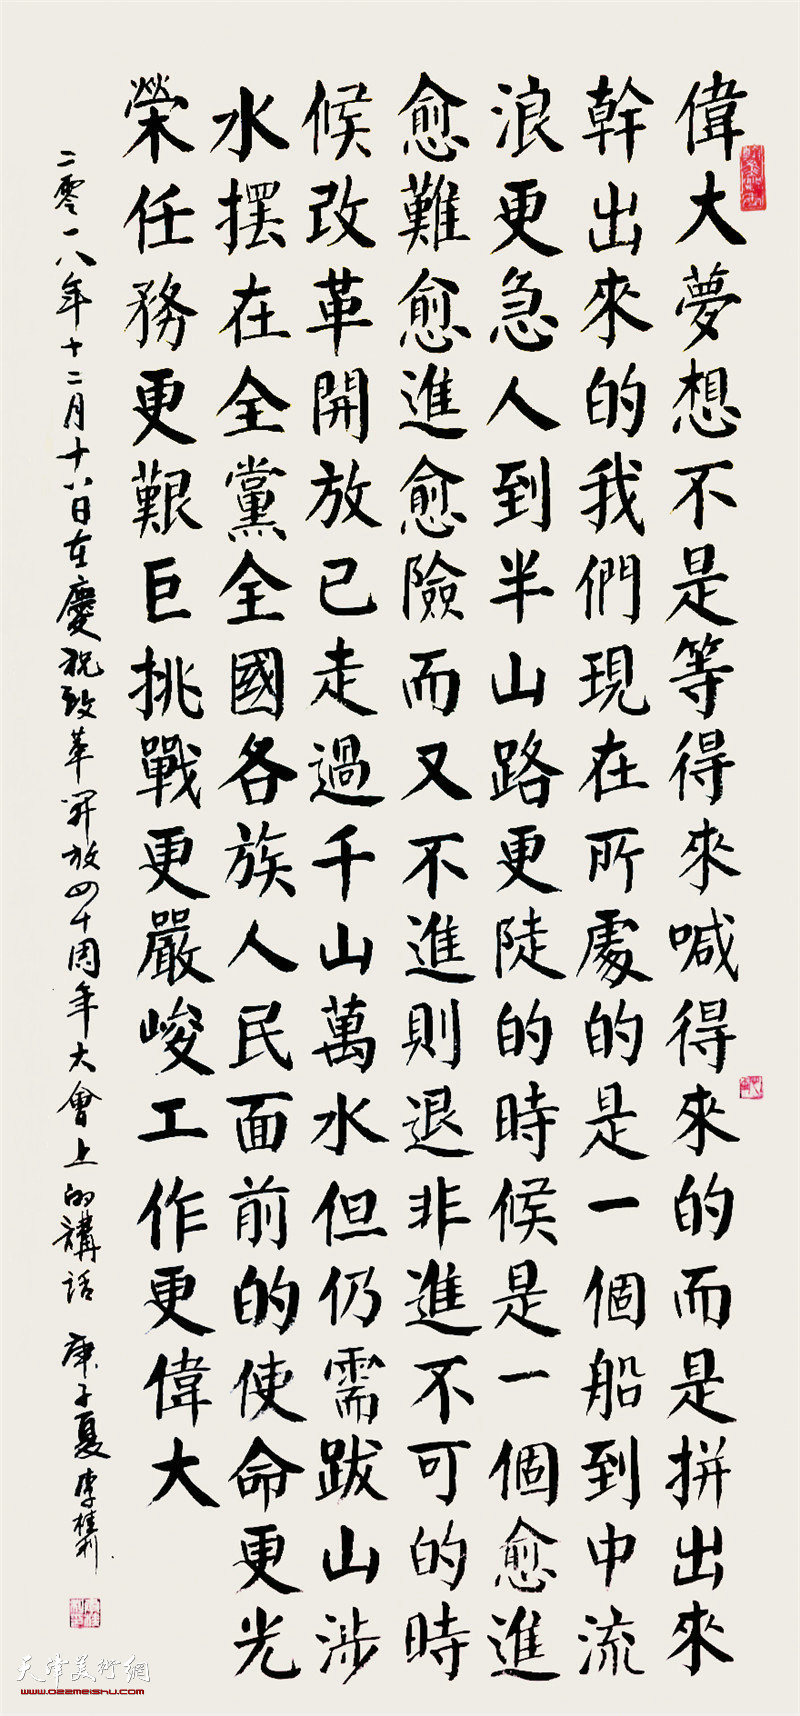 偉大夢想不是等得來喊得來的而是拼出來
幹出來的我們現在所處的是一個船到中流
浪更急人到半山路更陡的時候是一個愈進
愈難愈進愈險而又不進則退非進不可的時
候改革開放已走過千山萬水但仍需跋山涉
水摆在全黨全國各族人民面前的使命更光
榮任務更艱巨挑戰更嚴峻工作更偉大
二零一八年十二月十八日在慶祝改革开放四十周年大會上的講話 庚子夏李桂利
天津美術網
www.022meishu.com